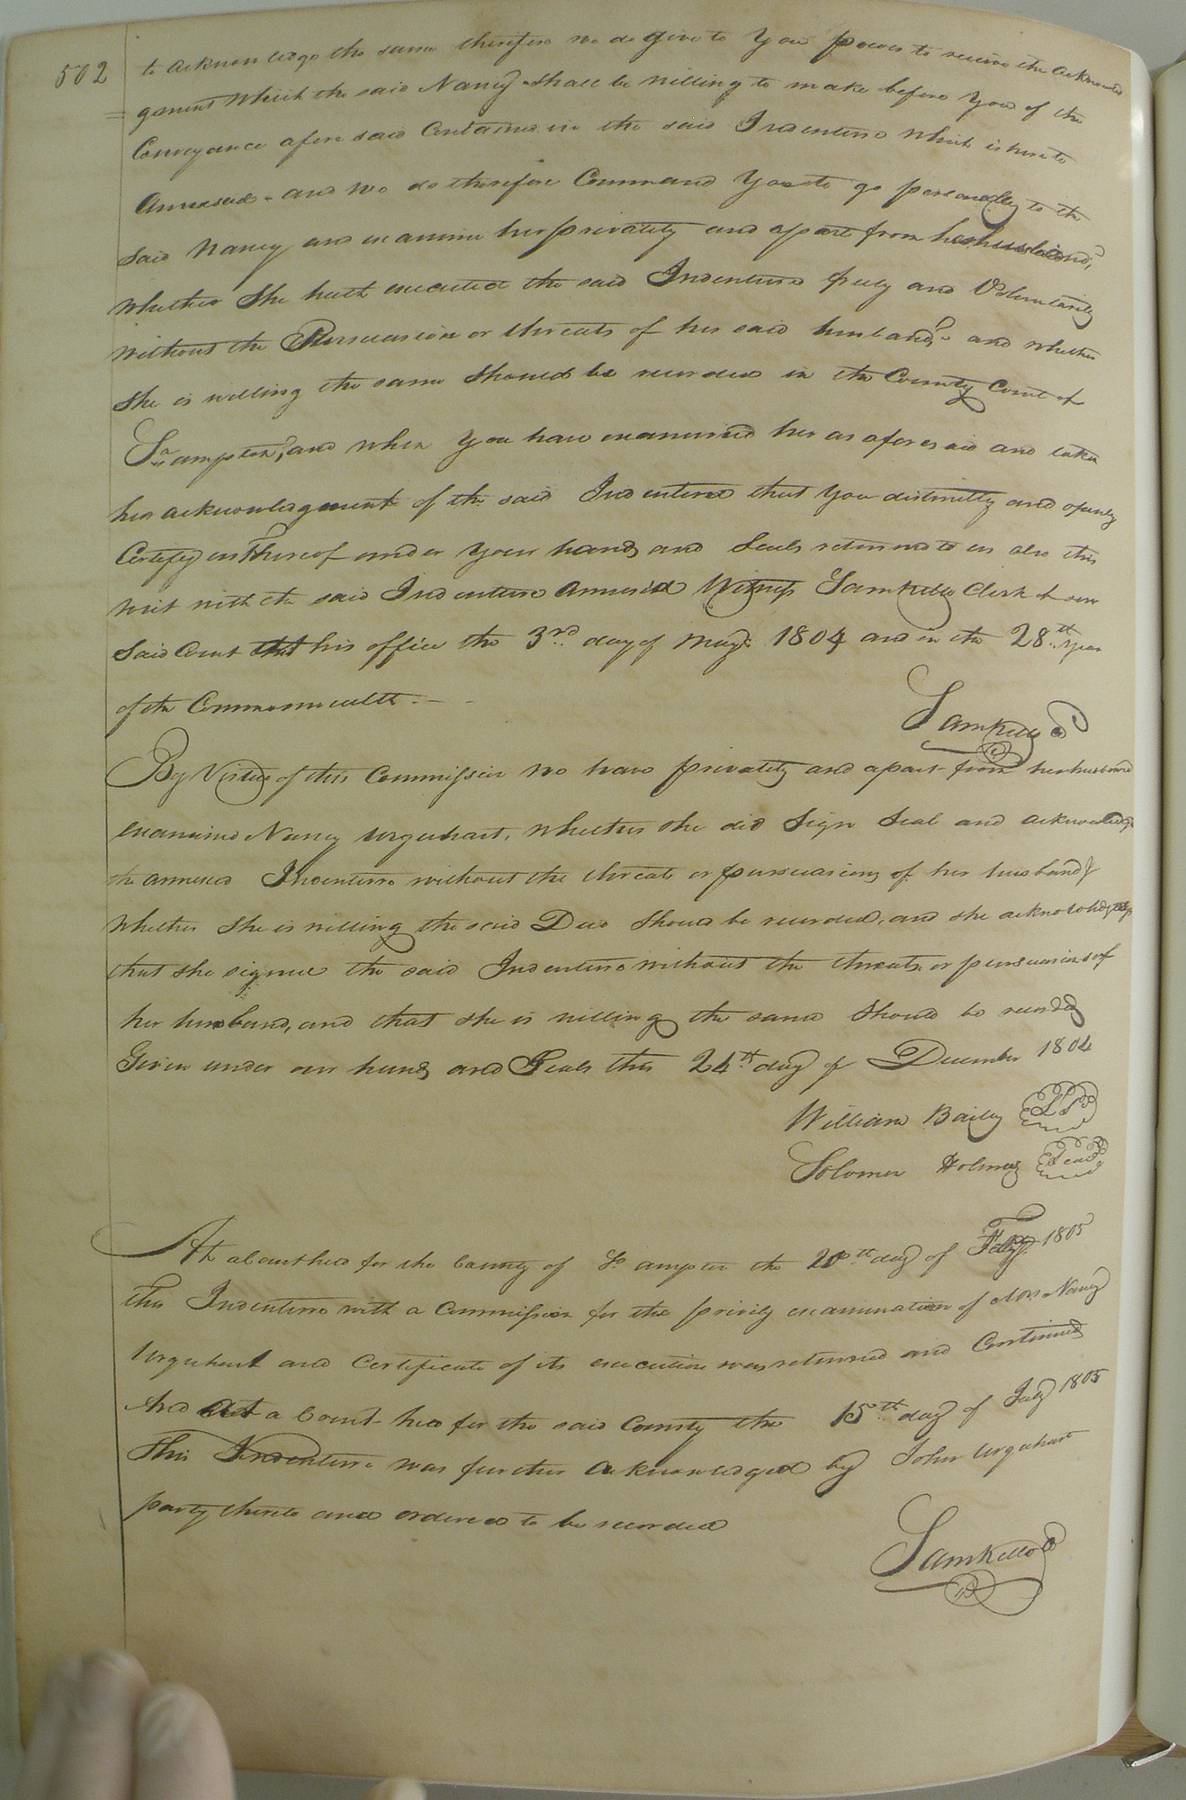 502
to acknowledge the same therefore we do give to you power to receive the acknowled
=gement which the said Nancy shall be willing to make before you of the
Conveyance afore said Contained in the said Indenture which is hereto
Annexed - and we do therefore Command You to go personally to the
said Nancy and examine her privately and apart from her husband,
whether She hath executed the said Indenture freely and Voluntarily
without the Persuasion or threats of her said husband, and whether
she is willing the same should be recorded in the County Court of
So ampton, and when you have examined her as aforesaid and taken
her acknowledgment of the said Indenture that you distinctly and openly
Certify us Thereof under your hands and Seals returned to us also this
writ with the said Indenture Annexed Witness Saml Kello Clerk of our
Said Court at his office the 3rd day of May 1804 and in the 28th Year
of the Commonwealth. —
Saml Kello
By Virtue of this Commission we have privately and apart from her husband
examined Nancy Urquhart, whether she did Sign Seal and acknowledge
the annexed Indenture without the threats or persuasions of her husband &
whether she is willing the said Deed should be recorded, and she acknowledges
that she signed the said Indenture without the threats or persuasions of
her husband, and that she is willing the same should be recorded
Given under our hands and Seals this 24th day of December 1804
William Bailey L.S.
Solomon Holmes Seal
At a Court held for the County of So ampton the 20th day of Feby 1805
This Indenture with a Commission for the privily examination of Mrs Nancy
Urquhart and Certificate of its execution was returned and Continued
And At a Court held for the said County the 15th day of July 1805
This Indenture was further acknowledged by John Urquhart
party thereto and ordered to be recorded
Saml Kello